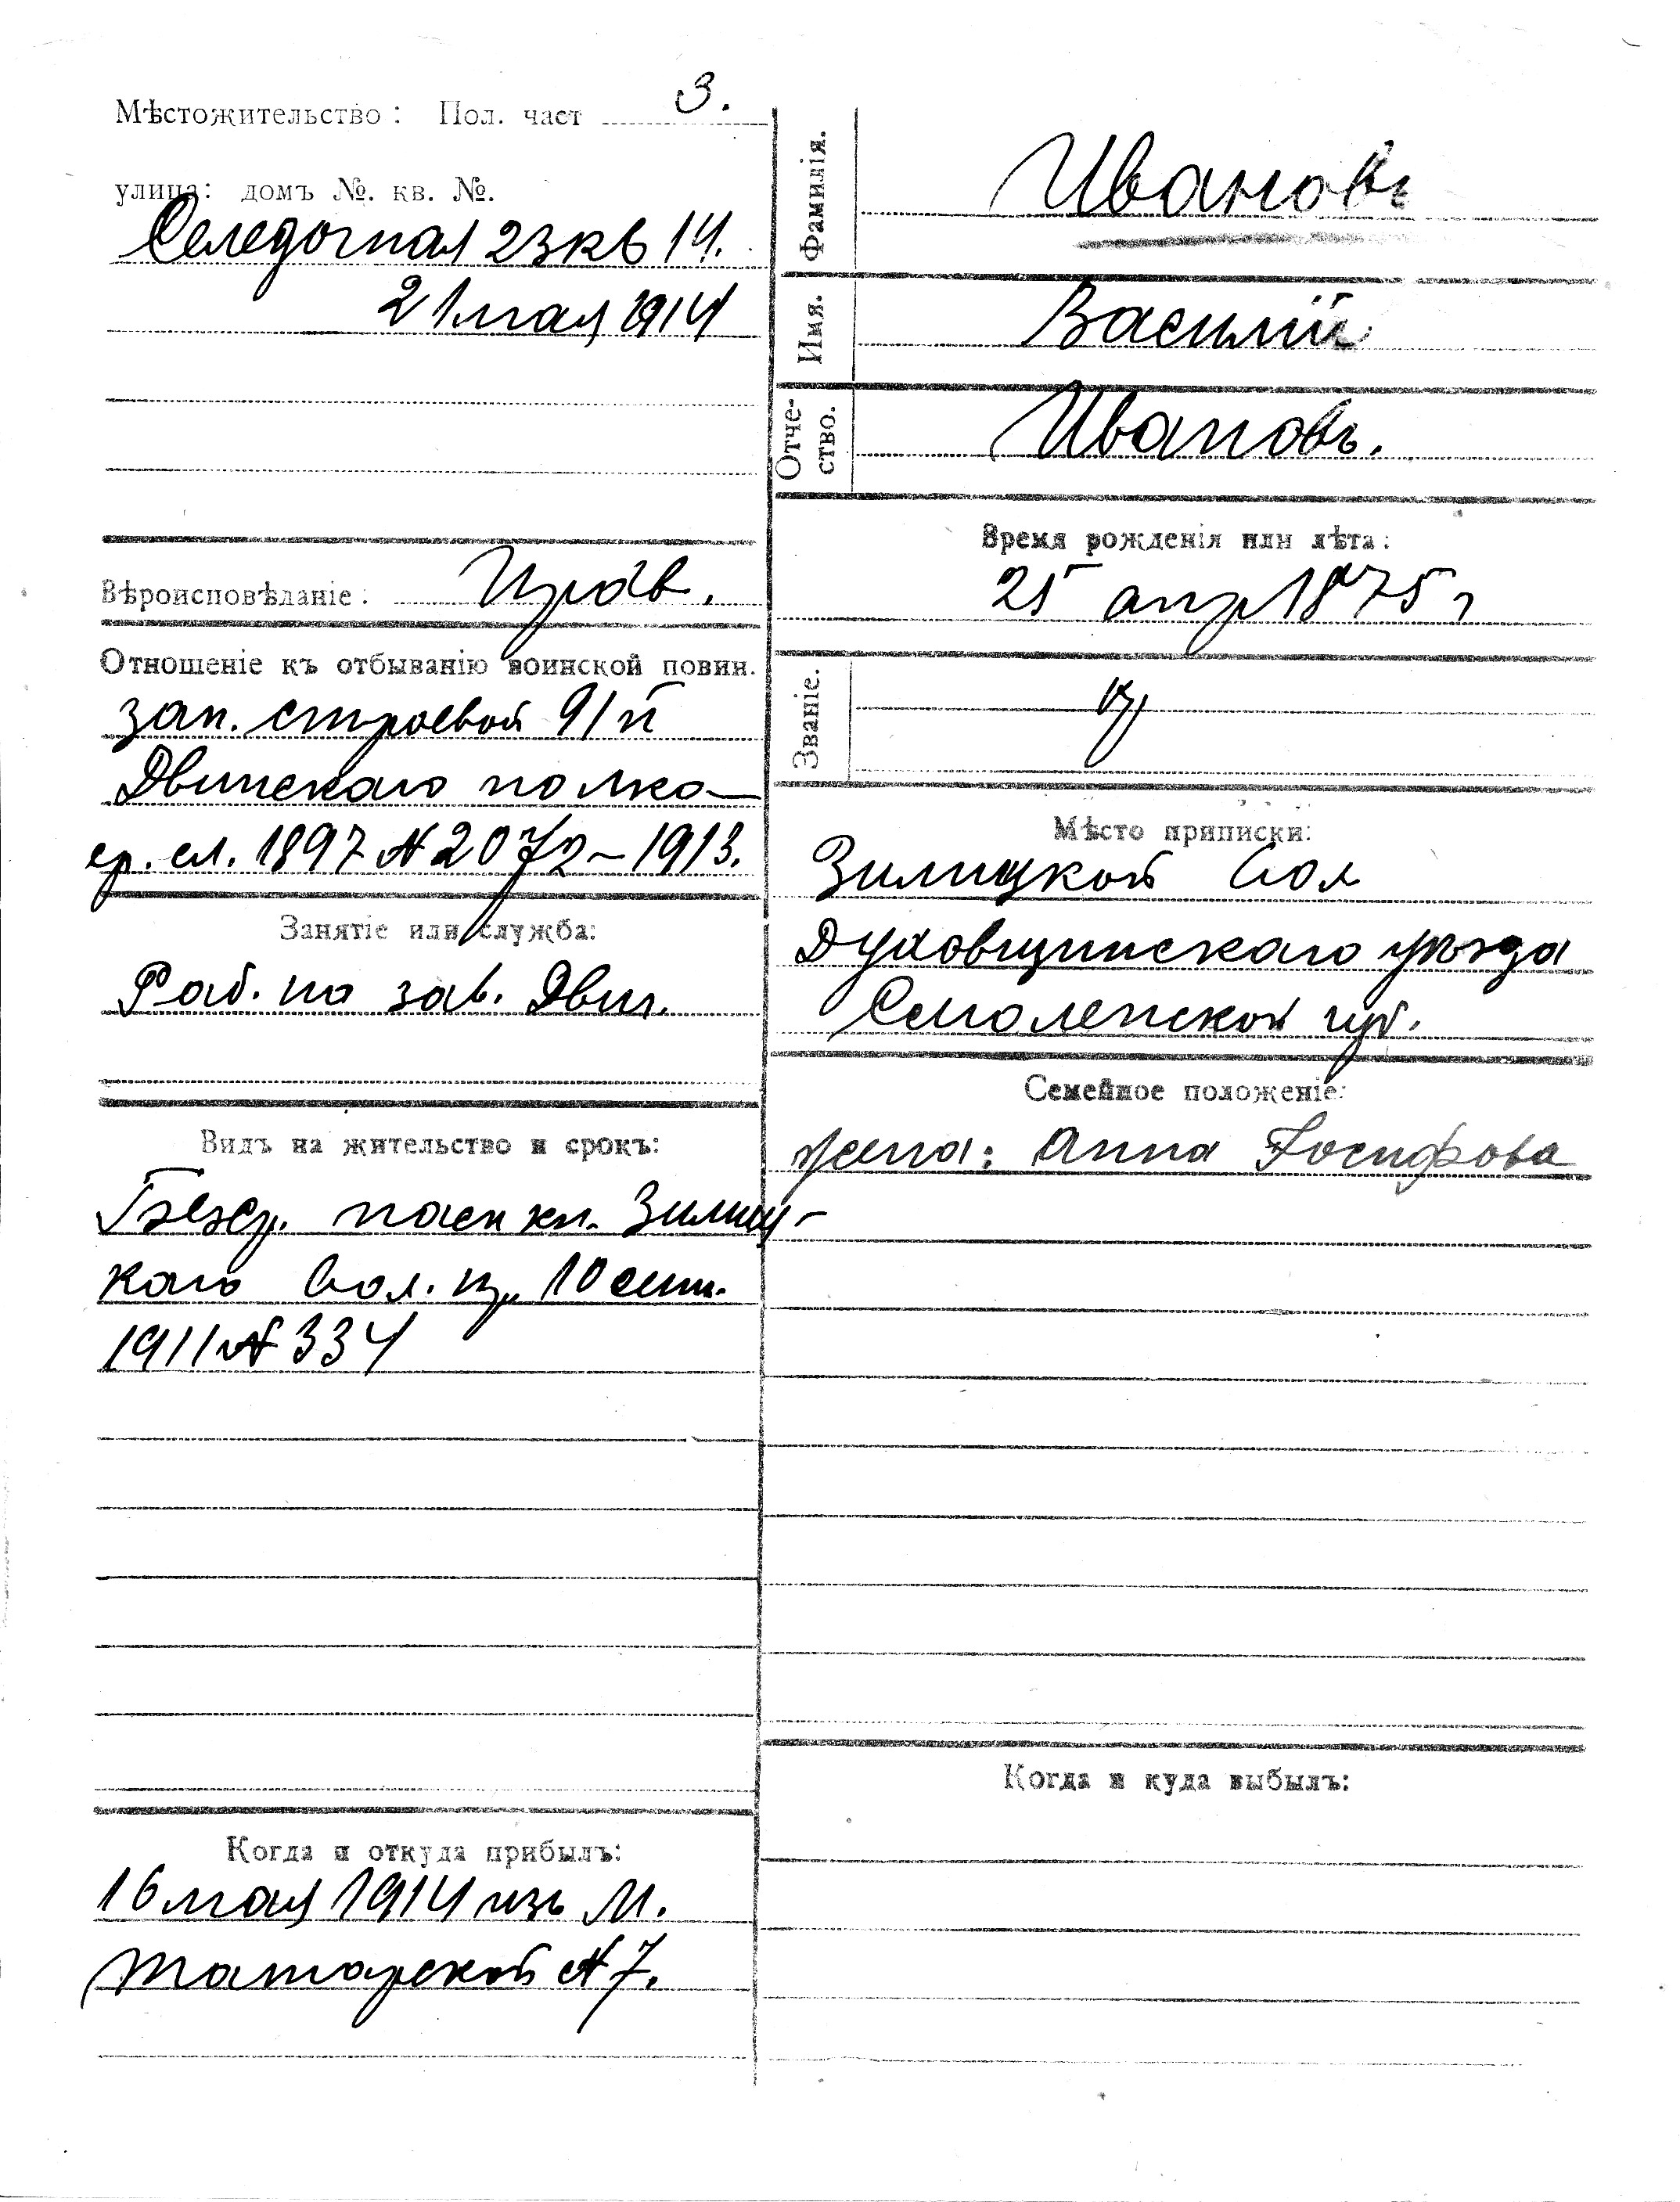 Мѣстожительство: Пол. част 3.
улица: домъ №. кв. №.
Селедочная 23 кв 14.
21 мая 1914
Вѣроисповѣданіе: Прав.
Отношеніе къ отбыванію воинской повин.
зап. строевой 91 п
Двинскаго полка
ср. сл. 1897 № 2072 – 1913.
Занятіе или служба:
Раб. на зав. Двиг.
Видъ на жительство и срокъ:
Безср. пасп кн. Зилиц-
каго Вол. пр. 10 сент.
1911 № 334
Когда и откуда прибылъ:
16 мая 1914 изъ М.
Татарской № 7.
Фамилія. Ивановъ
Имя. Василій
Отче-
ство. Ивановъ.
Время рожденія или лѣта:
25 апр 1875 г
Званіе. кр
Мѣсто приписки:
Зилицкой Вол
Духовщинскаго уѣзда
Смоленской губ.
Семейное положеніе:
жена: Анна Іосифова
Когда и куда выбылъ: